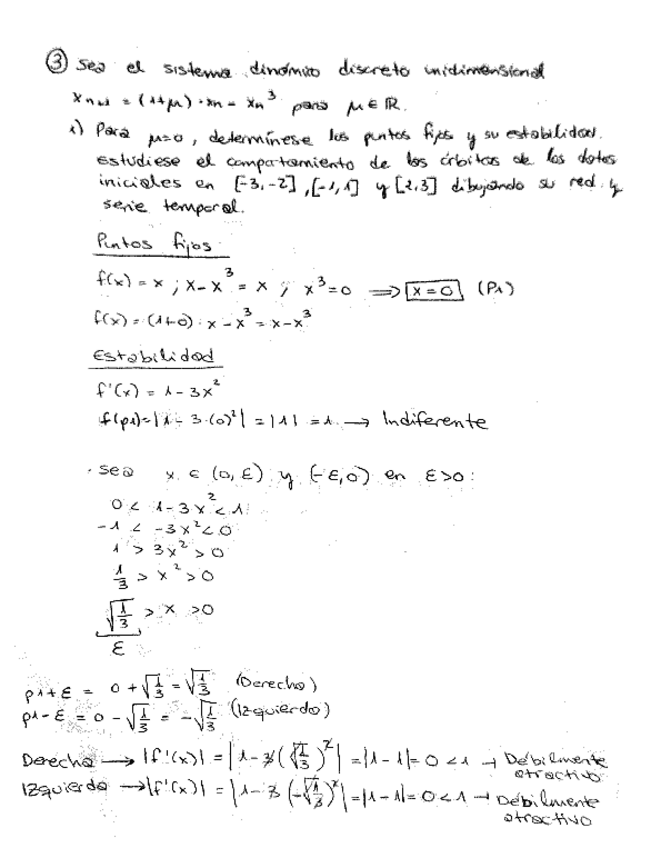 ③ Sea el sistema dinámico discreto unidimensional
xn+1 = (1+μ)·xn - xn³ para μ ∈ ℝ.
i) Para μ=0, determínese los puntos fijos y su estabilidad.
estúdiese el comportamiento de las órbitas de los datos
iniciales en [-3,-2], [-1,1] y [2,3] dibujando su red y
serie temporal.
Puntos fijos
f(x) = x ; x-x³ = x ; x³=0 ⟹ x=0 (P1)
f(x) = (1+0)·x - x³ = x-x³
Estabilidad
f'(x) = 1-3x²
f(p1)=|1-3·(0)²| = |1| = 1 → Indiferente
· Sea x ∈ (0,ε) y (-ε,0) en ε>0:
0 < 1-3x² < 1
-1 < -3x² < 0
1 > 3x² > 0
1/3 > x² > 0
√(1/3) > x > 0
ε
p1+ε = 0 + √(1/3) = √(1/3) (Derecho)
p1-ε = 0 - √(1/3) = -√(1/3) (Izquierdo)
Derecha → |f'(x)| = |1-3(√(1/3))²| = |1-1| = 0 < 1 → Débilmente
atractivo
Izquierda → |f'(x)| = |1-3(-√(1/3))²| = |1-1| = 0 < 1 → Débilmente
atractivo